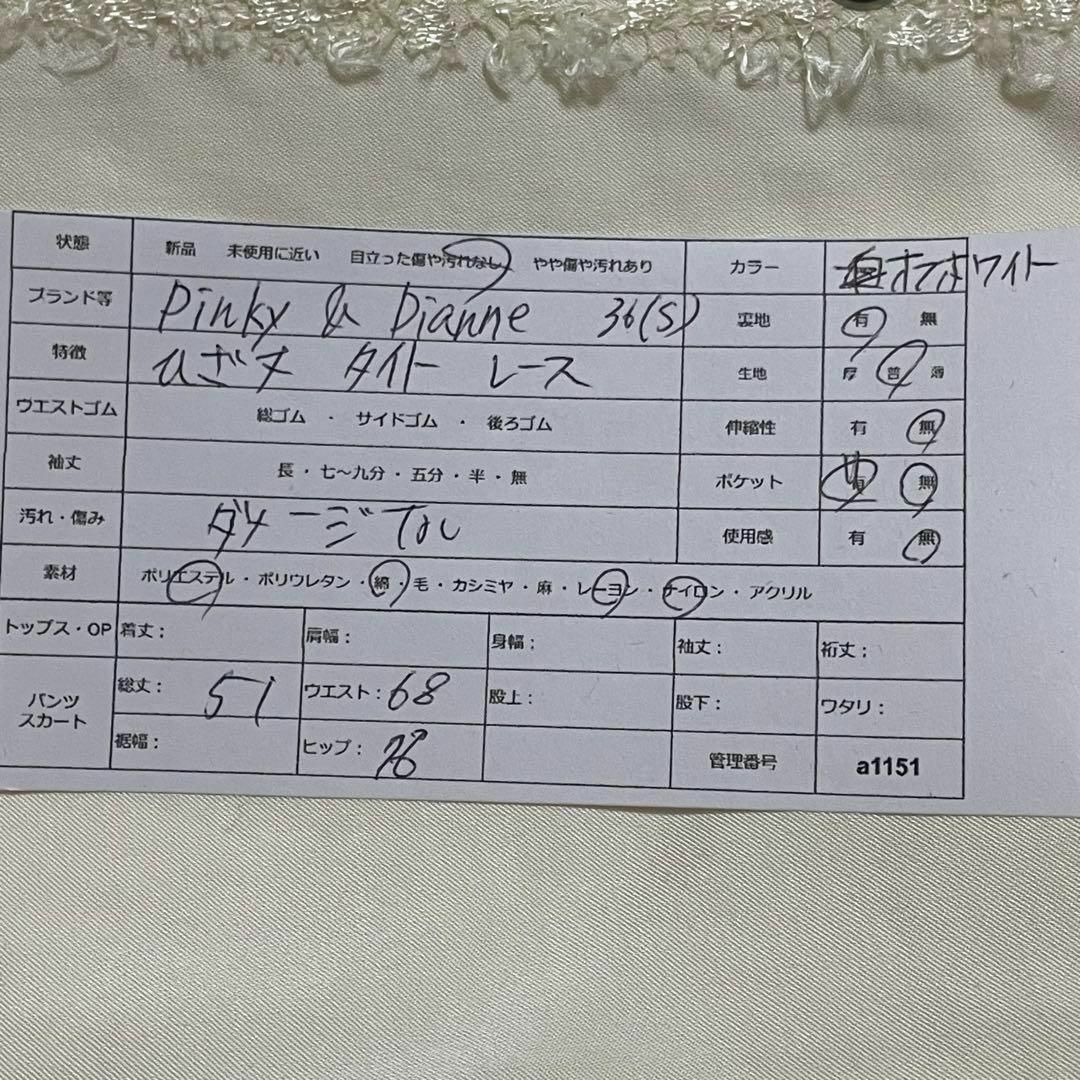 状態 新品 未使用に近い 目立った傷や汚れなし やや傷や汚れあり カラー オフホワイト
ブランド等 Pinky & Dianne 36(S) 裏地 有 無
特徴 ひざ丈 タイト レース 生地 厚 普 薄
ウエストゴム 総ゴム ・ サイドゴム ・ 後ろゴム 伸縮性 有 無
袖丈 長・七～九分・五分・半・無 ポケット 有 無
汚れ・傷み ダメージ 使用感 有 無
素材 ポリエステル・ポリウレタン・綿・毛・カシミヤ・麻・レーヨン・ナイロン・アクリル
トップス・OP 着丈： 肩幅： 身幅： 袖丈： 裄丈：
パンツ スカート 総丈： 51 ウエスト：68 股上： 股下： ワタリ：
裾幅： ヒップ： 管理番号 a1151